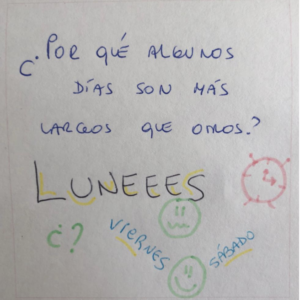 ¿POR QUÉ ALGUNOS
DÍAS SON MÁS
LARGOS QUE OTROS?
LUNEEES
24
¿?
VIERNES
SÁBADO